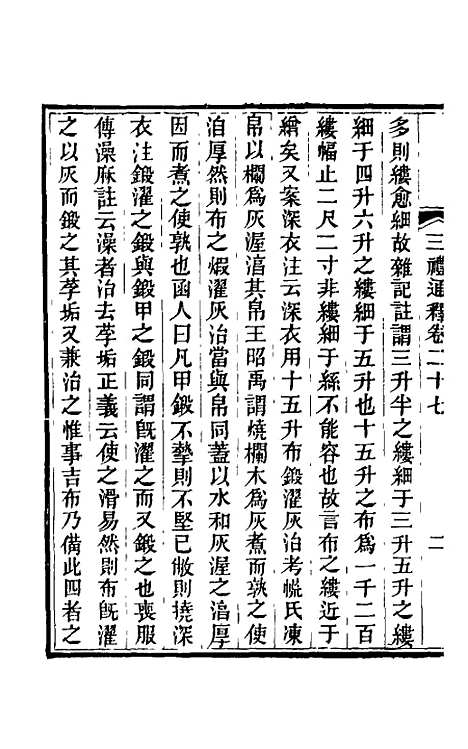 三禮通釋卷二十七
二
多則縷愈細故雜記註謂三升半之縷細于三升五升之縷
細于四升六升之縷細于五升也十五升之布爲一千二百
縷幅止二尺二寸非縷細于絲不能容也故言布之縷近于
繒矣又案深衣注云深衣用十五升布鍛濯灰治考㡛氏湅
帛以欄爲灰渥淳其帛王昭禹謂燒欄木爲灰煮而孰之使
洎厚然則布之煅濯灰治當與帛同蓋以水和灰渥之淳厚
因而煮之使孰也函人曰凡甲鍛不摰則不堅已敝則撓深
衣注鍛濯之鍛與鍛甲之鍛同謂旣濯之而又鍛之也喪服
傳澡麻註云澡者治去莩垢正義云使之滑易然則布旣濯
之以灰而鍛之其莩垢又兼治之惟事吉布乃備此四者之